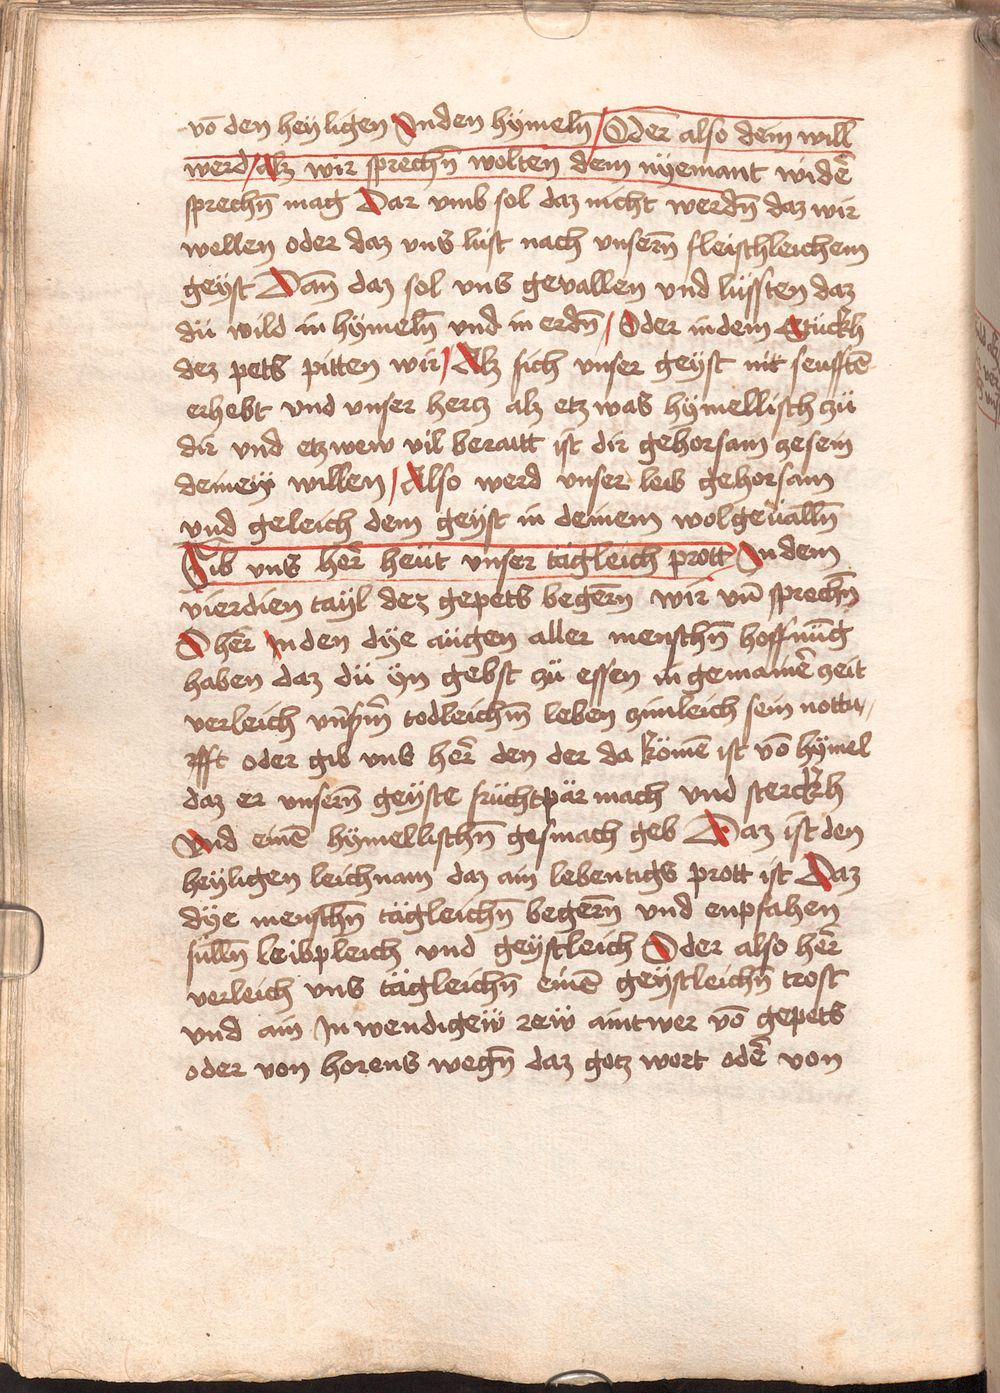 vō den heyligen Inden hymeln̄ / Oder also dein will
werd / Alz wir sprechn̄ wolten dem nyemant widē
sprechn̄ mag Dar vmb sol daz nicht werdn̄ daz wir
wellen oder daz vns lust nach vnsern̄ fleischleichem
geyst Dan̄ daz sol vns gevallen vnd lüssten daz
dü wild in hymeln̄ vnd in erdn̄ / Oder in dem Stückh
dez pets pitten wir / Alz sich vnser geyst mit seufftē
erhebt vnd vnser hertz alz etzwas hymellisch zü
dir vnd etzwew vil beraitt ist dir gehorsam zesein
deinem willen / Also werd vnser leib gehorsam
vnd geleich dem geyst in deinem wolgeuälln̄
Gib vns her̄ heüt vnser tägleich prott Indem
vierdien tayl dez gepets begern̄ wir vn̄ sprechn̄
O her̄ Inden dye augen aller menschn̄ hoffnūg
haben daz dü yn gebst zü essen in gemainē zeit
verleich vn̄sm̄ todleichn̄ leben zimleich sein nottu//
rfft oder gib vns her̄ den der da kömē ist vō hymel
daz er vnsern̄ geyste früchtpär mach vnd sterckh
Vnd einē hymellischn̄ gesmach geb Daz ist den
heyligen leichnam daz ain lebentigs prott ist Daz
dye menschn̄ tägleichn̄ begern̄ vnd enpfahen
sülln̄ leibpleich vnd geystleich Oder also her̄
verleich vns tägleichn̄ einē geystleichn̄ trost
vnd ain Inwendigew rew aintwer vō gepets
oder von horens wegn̄ daz gotz wort odē von